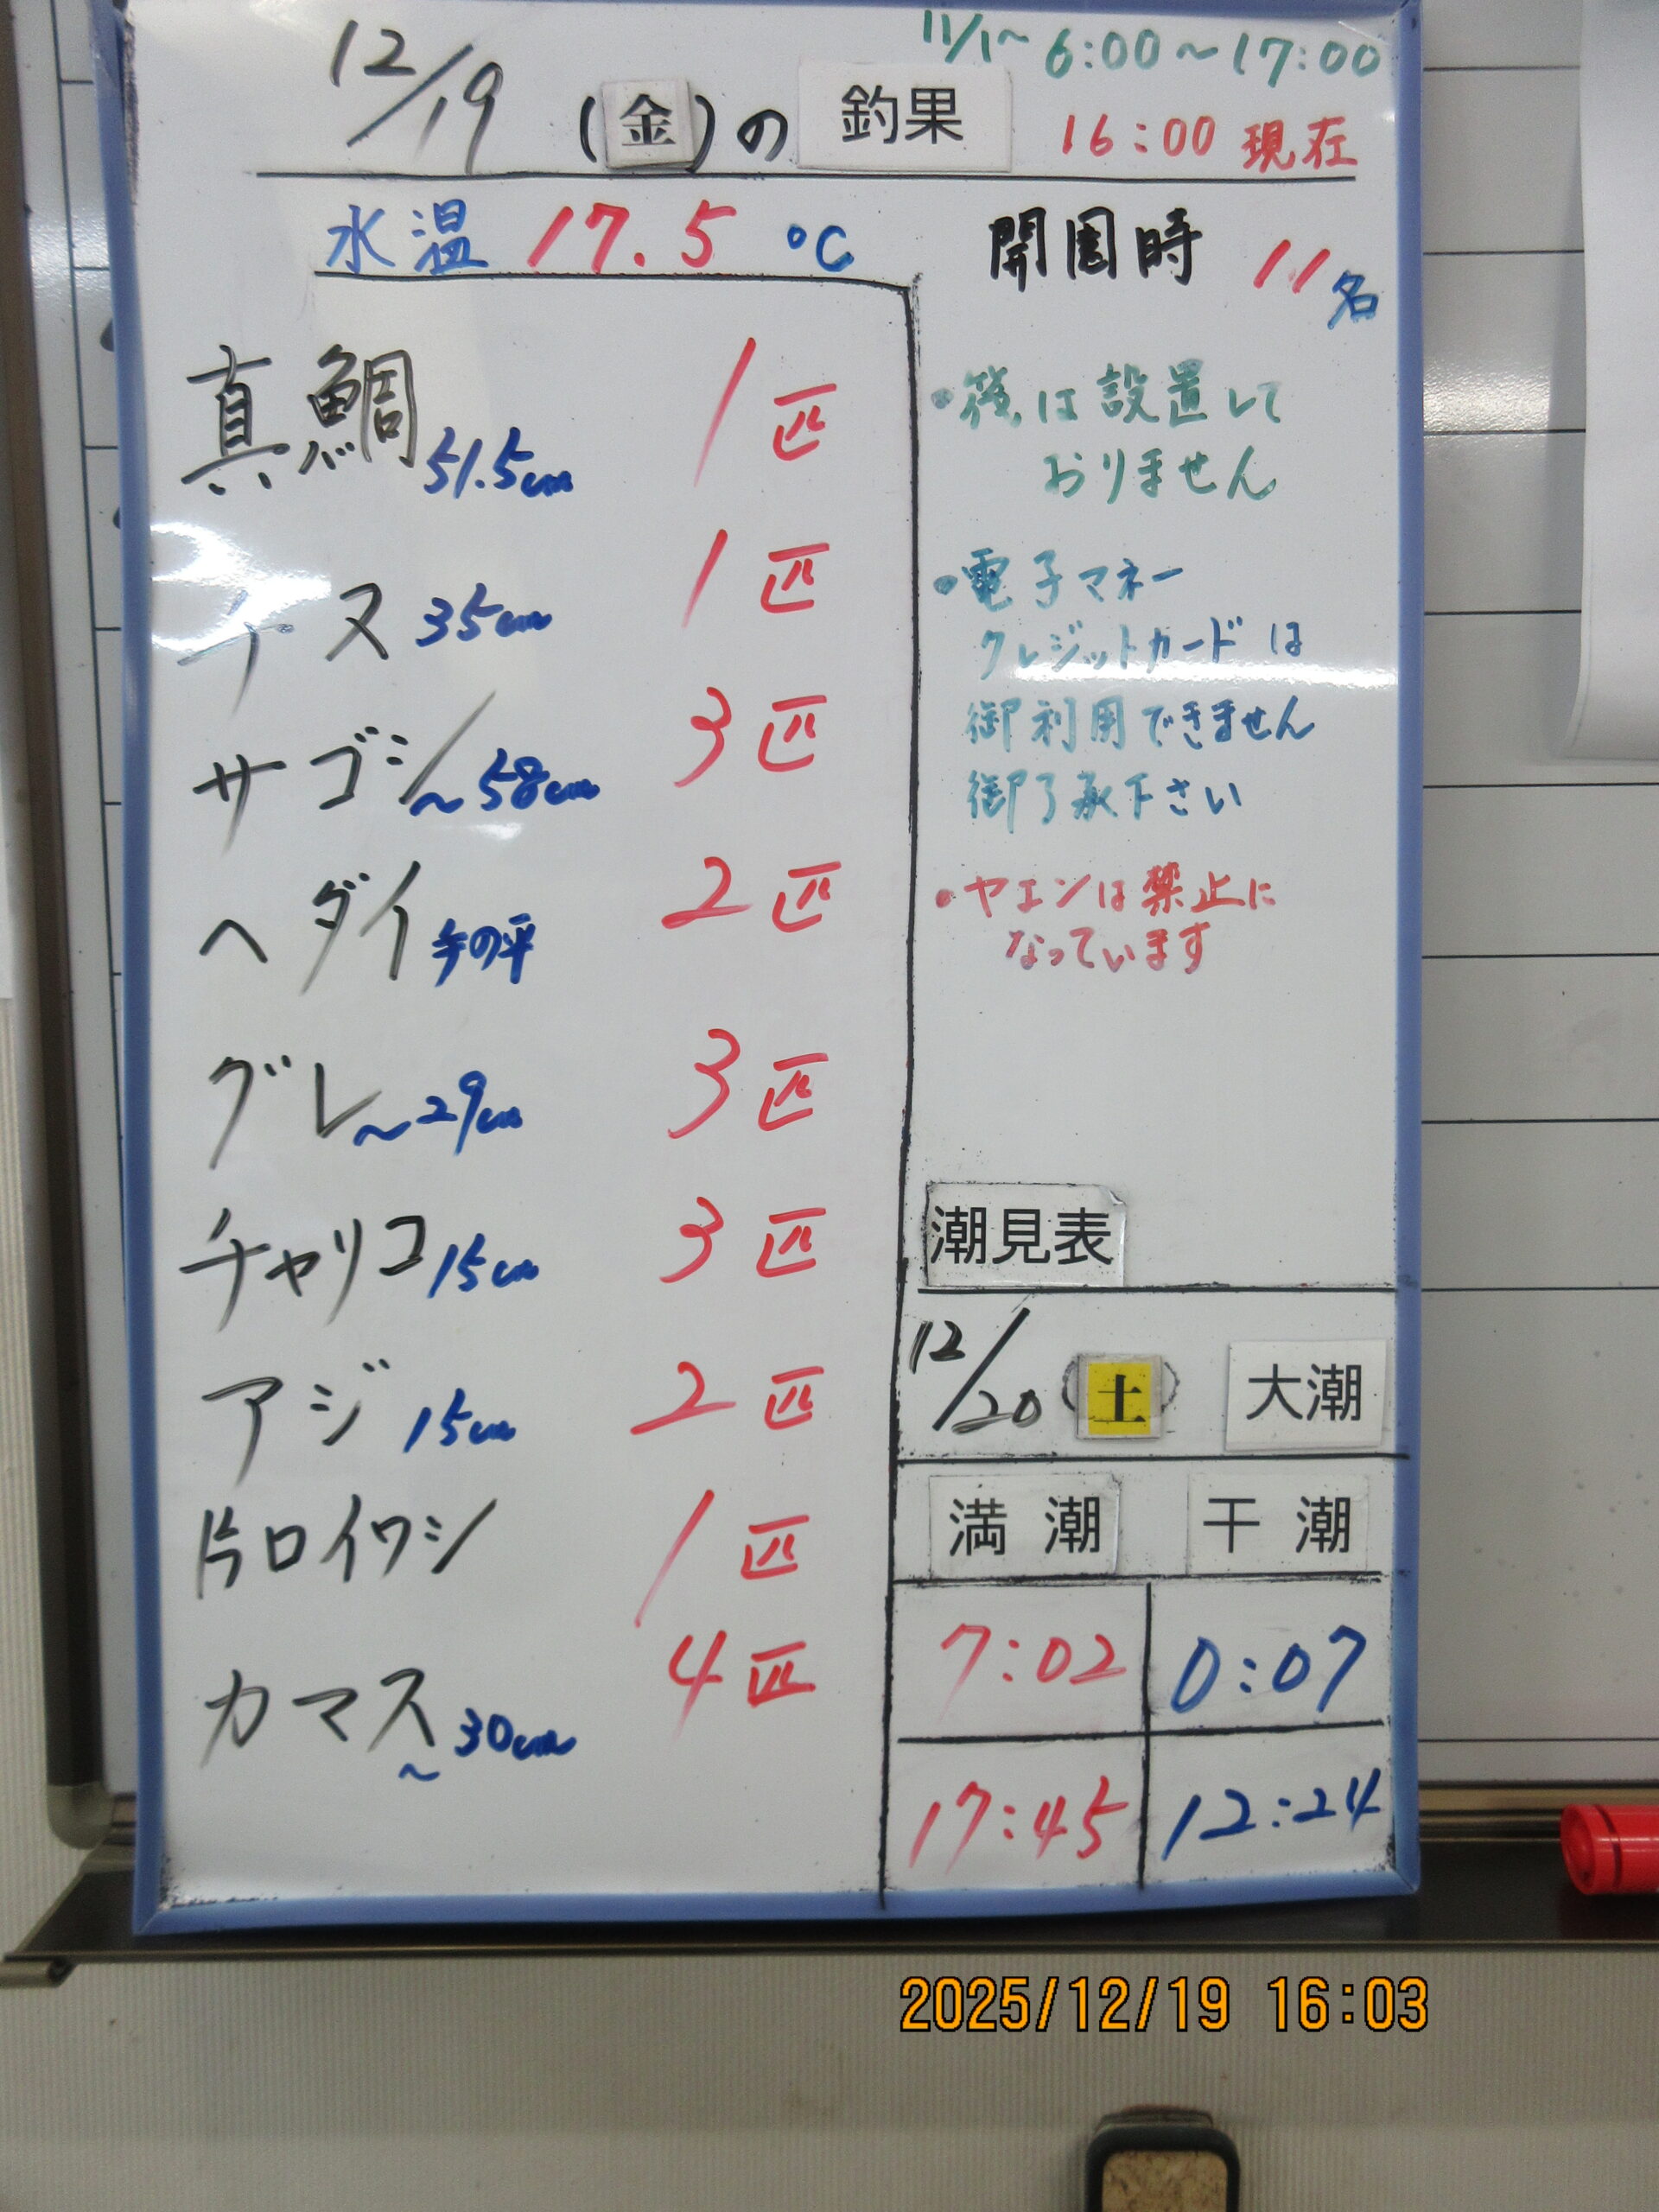 11/1~ 6:00～17:00
12/19 (金)の 釣果 16:00 現在
水温 17.5 ℃
開園時 11名
真鯛 51.5cm 1匹
チヌ 35cm 1匹
サゴシ ~58cm 3匹
ヘダイ 手の平 2匹
グレ ~29cm 3匹
チャリコ 15cm 3匹
アジ 15cm 2匹
片口イワシ 1匹
カマス ~30cm 4匹
は設置して
おりません
・電子マネー
クレジットカードは
御利用できません
御了承下さい
・ヤエンは禁止に
なっています
潮見表
12/20 (土) 大潮
満潮 干潮
7:02 0:07
17:45 12:24
2025/12/19 16:03